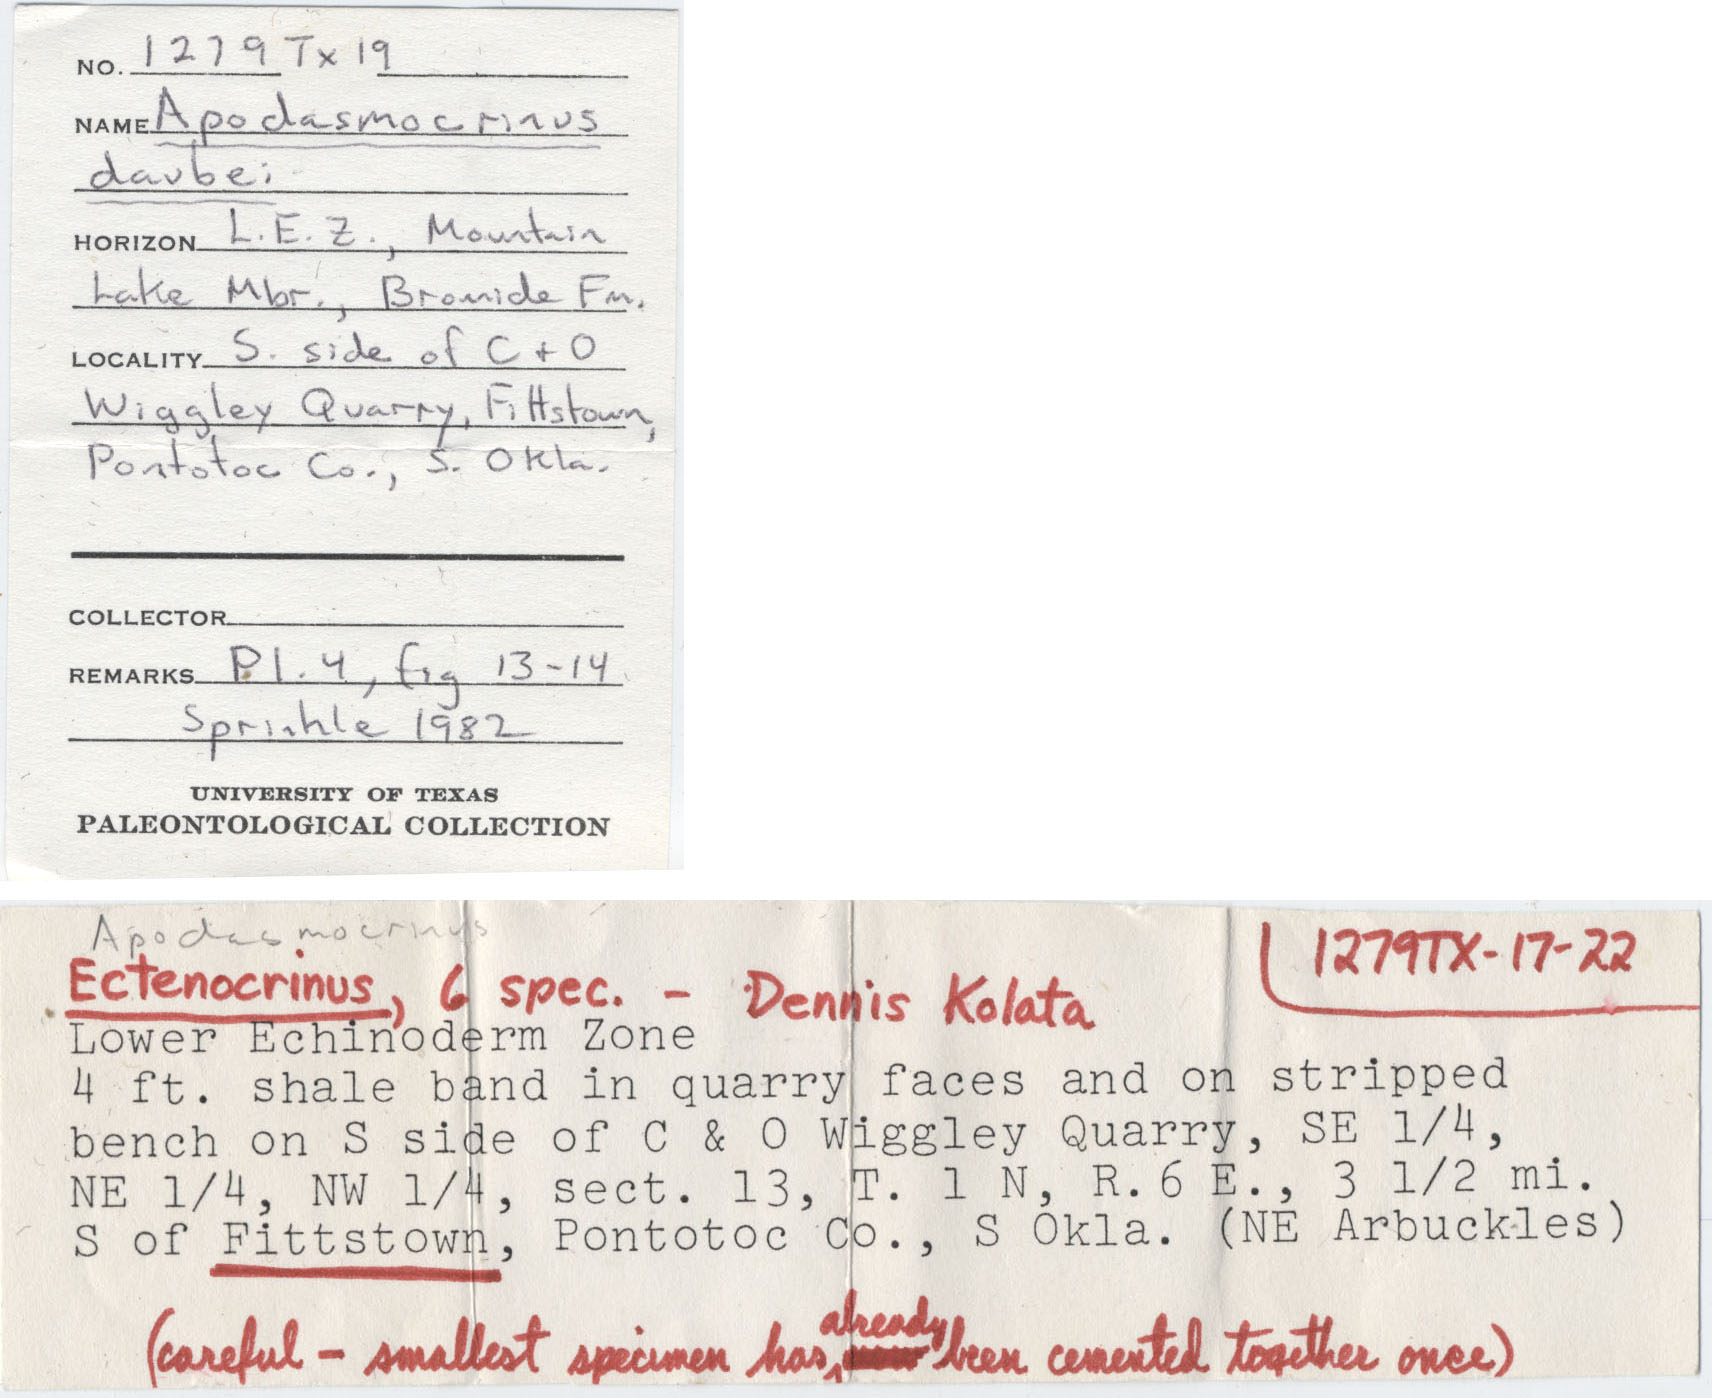 NO. 1279 Tx 19
NAME Apodasmocrinus
daubei
HORIZON L.E.Z., Mountain
Lake Mbr., Bromide Fm.
LOCALITY S. side of C + O
Wiggley Quarry, Fittstown,
Pontotoc Co., S. Okla.
COLLECTOR
REMARKS Pl. 4, fig 13-14
Sprinkle 1982
UNIVERSITY OF TEXAS
PALEONTOLOGICAL COLLECTION
Apodasmocrinus
1279TX-17-22
Ectenocrinus, 6 spec. - Dennis Kolata
Lower Echinoderm Zone
4 ft. shale band in quarry faces and on stripped
bench on S side of C & O Wiggley Quarry, SE 1/4,
NE 1/4, NW 1/4, sect. 13, T. 1 N, R.6 E., 3 1/2 mi.
S of Fittstown, Pontotoc Co., S Okla. (NE Arbuckles)
(careful - smallest specimen has already been cemented together once)